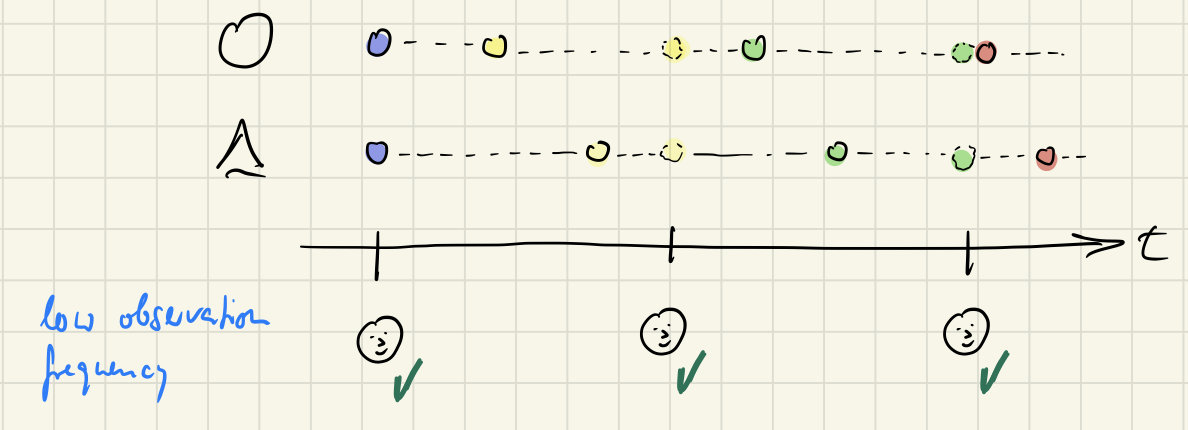 t
low observation
frequency